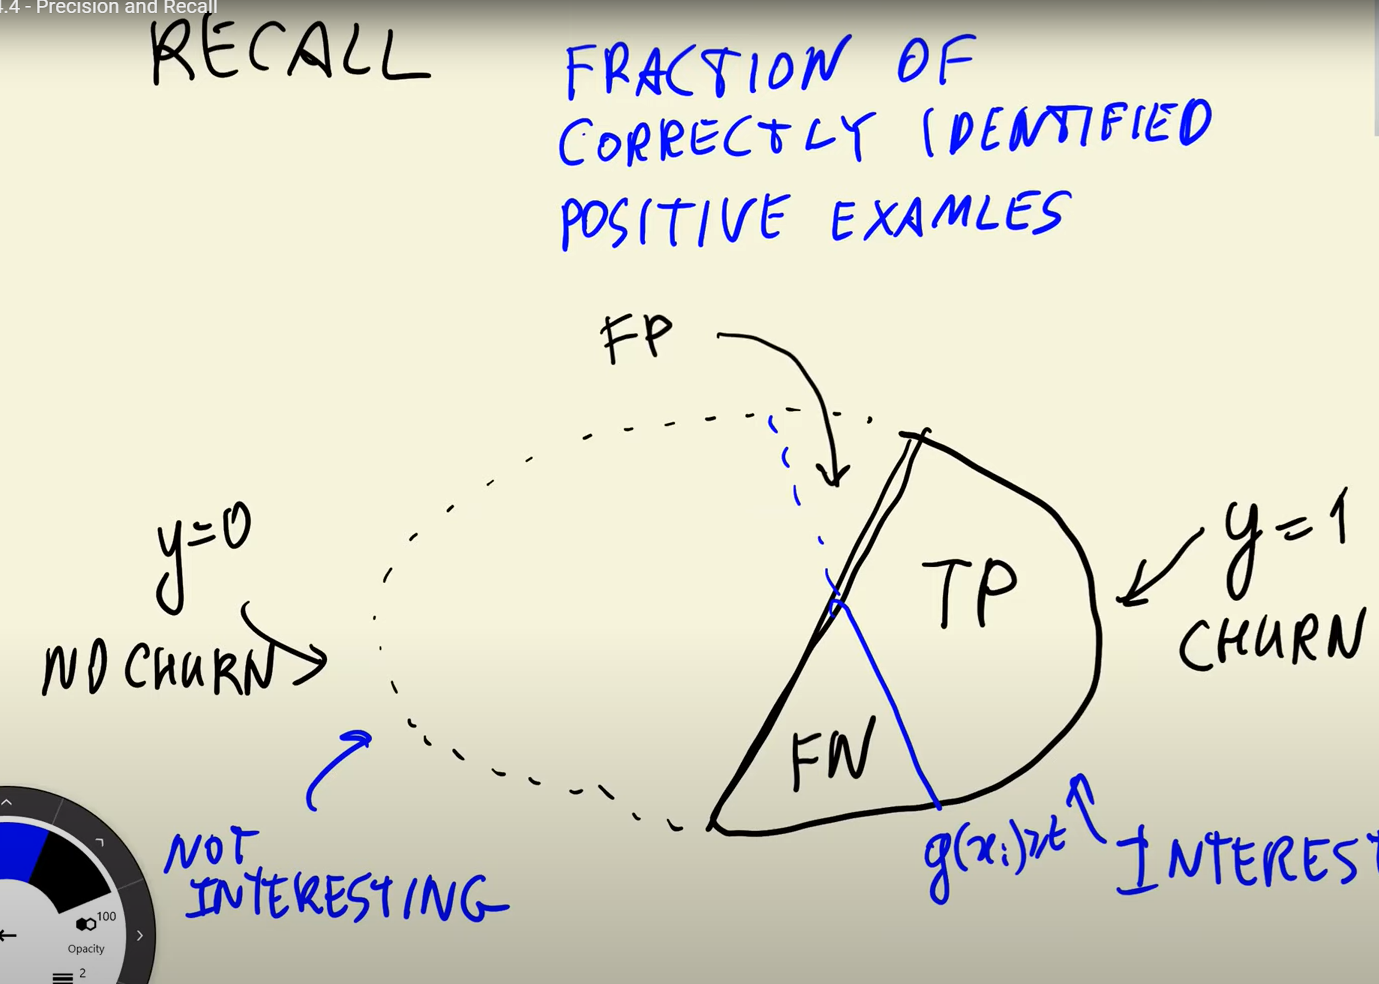 4.4 - Precision and Recall
RECALL
FRACTION OF
CORRECTLY IDENTIFIED
POSITIVE EXAMLES
FP
y=0
NO CHURN
TP
y=1
CHURN
FN
g(xi)≥t
NOT
INTERESTING
INTEREST
100
Opacity
2